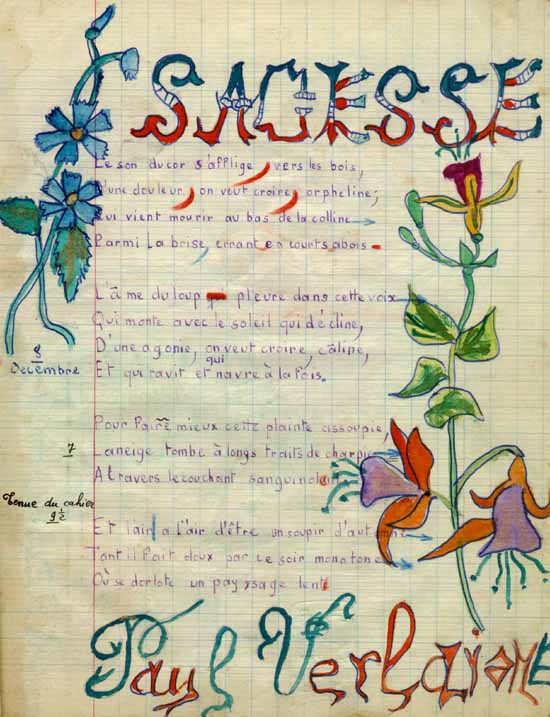 SAGESSE
Le son du cor s'afflige vers les bois,
D'une douleur, on veut croire, orpheline,
Qui vient mourir au bas de la colline
Parmi la brise, errant en courts abois
L'âme du loup pleure dans cette voix
Qui monte avec le soleil qui décline,
D'une agonie, on veut croire, câline,
8
Decembre
qui
Et qui ravit et navre à la fois.
Pour faire mieux cette plainte assoupie,
7
La neige tombe à longs traits de charpie
A travers le couchant sanguinolent
Tenue du cahier
9 1/2
Et l'air a l'air d'être un soupir d'automne
Tant il fait doux par ce soir monotone
Où se dorlote un paysage lent
Paul Verlaine